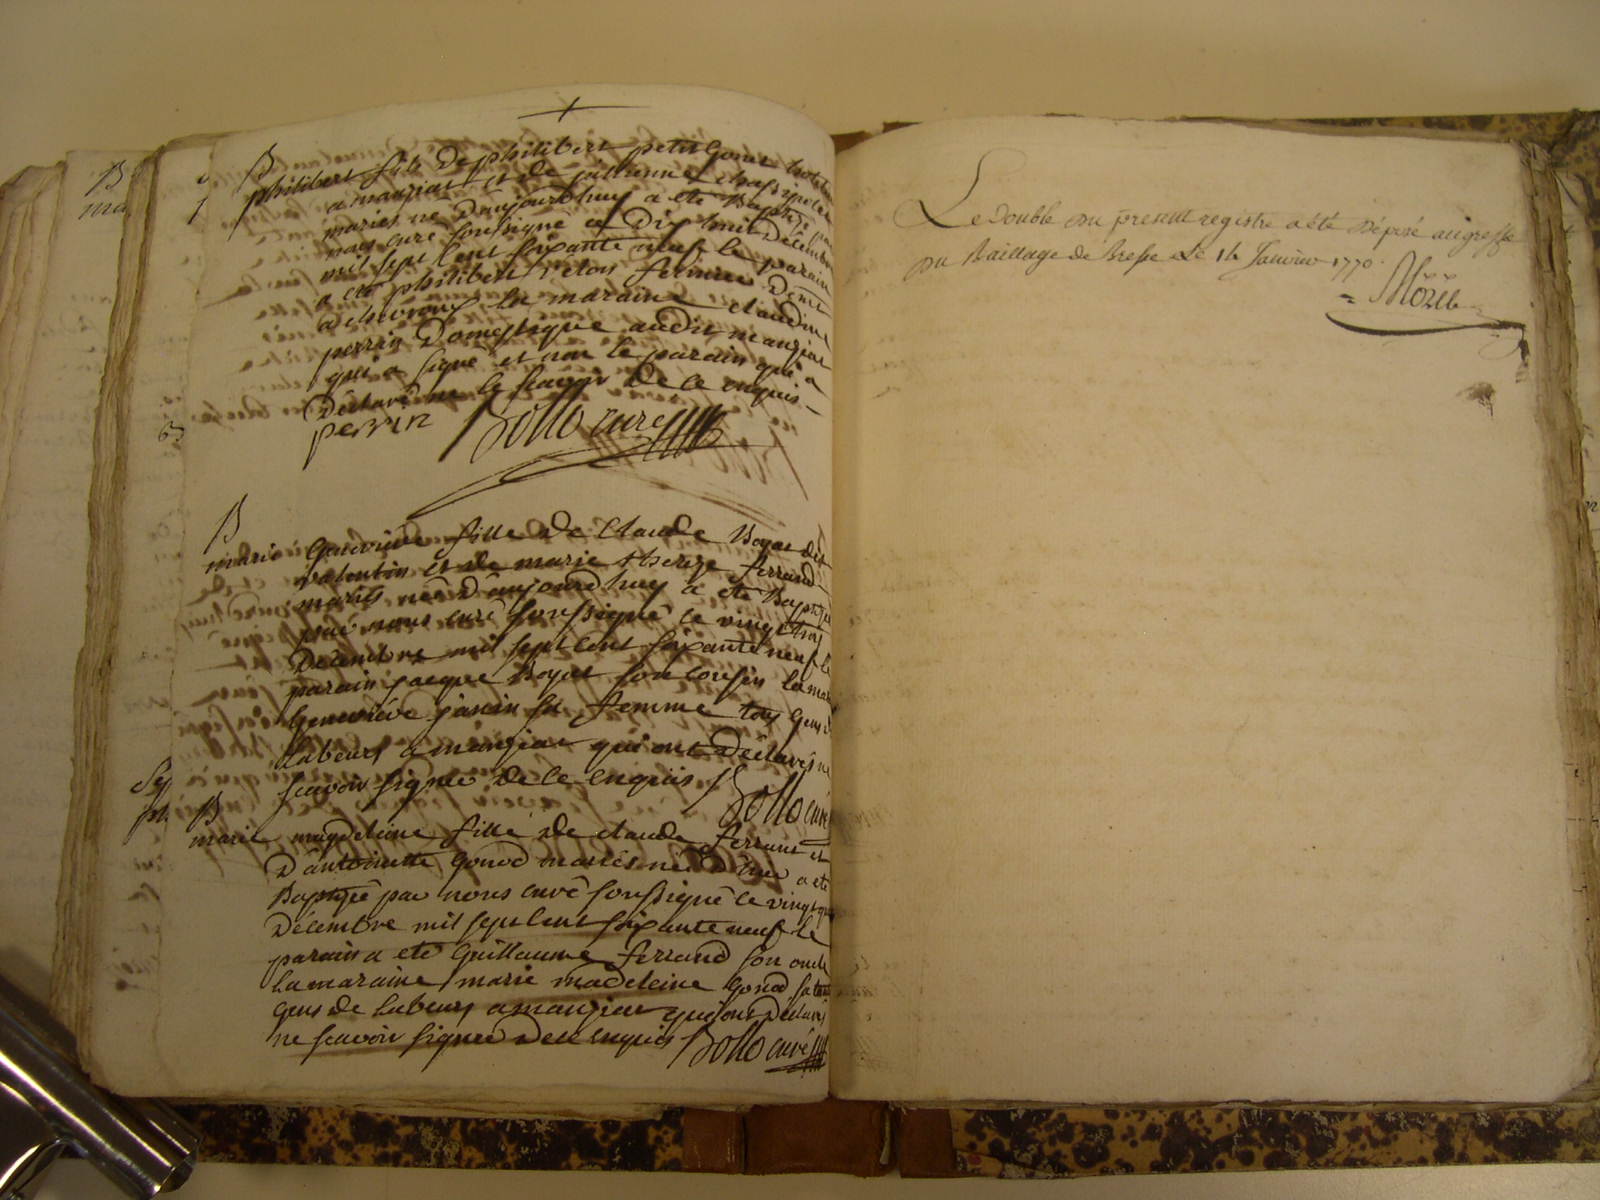 B
philibert fils de philibert petit Gonet
a manziat et de
mariés né d'aujourdhuy a été Baptisé par
nous curé soussigné ce dix huit Décembre
mil sept cent soixante neuf le parain
a été philibert fermier demt
a chevroux la maraine claudine
perrin Domestique audit manziat
qui a signé et non le parain qui a
Declaré ne le scavoir de ce enquis
perrin Bollo curé
B
marie Genevieve fille de Claude Boyat dit
valentin et de marie therese ferrand
mariés née d'aujourdhuy a été Baptisée
par nous curé soussigné ce vingt trois
Décembre mil sept cent soixante neuf le
parain jacque Boyat son cousin la mar
Genevieve janin sa femme tous gens de
labeurs a manziat qui ont Déclarés ne
scavoir signer de ce enquis Bollo curé
B
marie magdeleine fille de claude ferrand et
d'antoinette Gonod mariés née d'hier a été
Baptisée par nous curé soussigné ce vingt
Décembre mil sept cent soixante neuf le
parain a été Guillaume ferrand son oncle
la maraine marie madeleine Gonod sa tante
gens de labeurs a manziat qui ont Déclarés
ne scavoir signer de ce enquis Bollo curé
Le Double du present registre a été déposé au greffe
du Baillage de Bresse Le 16 Janvier 1770.